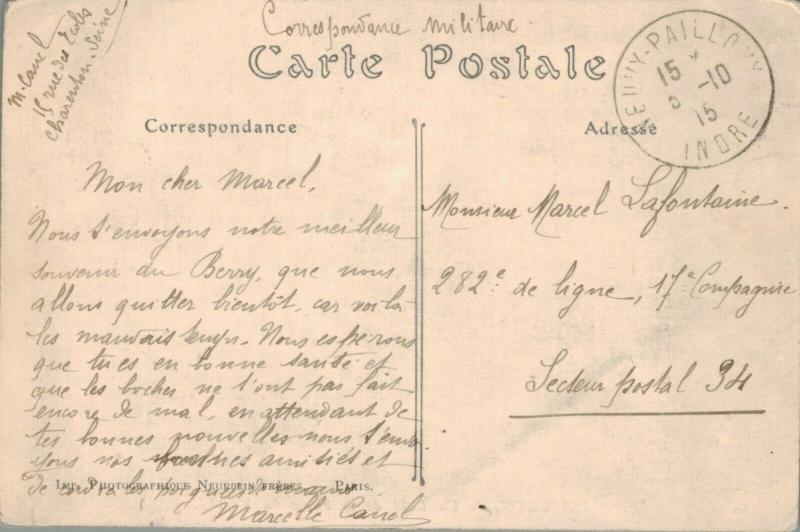 M. Canel
15 rue des Ecoles
Charenton-Seine
Correspondance militaire
Carte Postale
NEUVY-PAILLOUX
15
-10
15
INDRE
Correspondance
Adresse
Mon cher Marcel,
Nous t'envoyons notre meilleur
souvenir du Berry, que nous
allons quitter bientôt, car voilà
les mauvais temps. Nous espérons
que tu es en bonne santé et
que les boches ne t'ont pas fait
encore de mal, en attendant de
tes bonnes nouvelles nous t'envo
yons nos bonnes amitiés et
de cordiales poignées de mains
Marcelle Canel
Monsieur Marcel Lafontaine.
282e de ligne, 17e Compagnie
Secteur postal 34
IMP. PHOTOGRAPHIQUE NEURDEIN FRÈRES. PARIS.